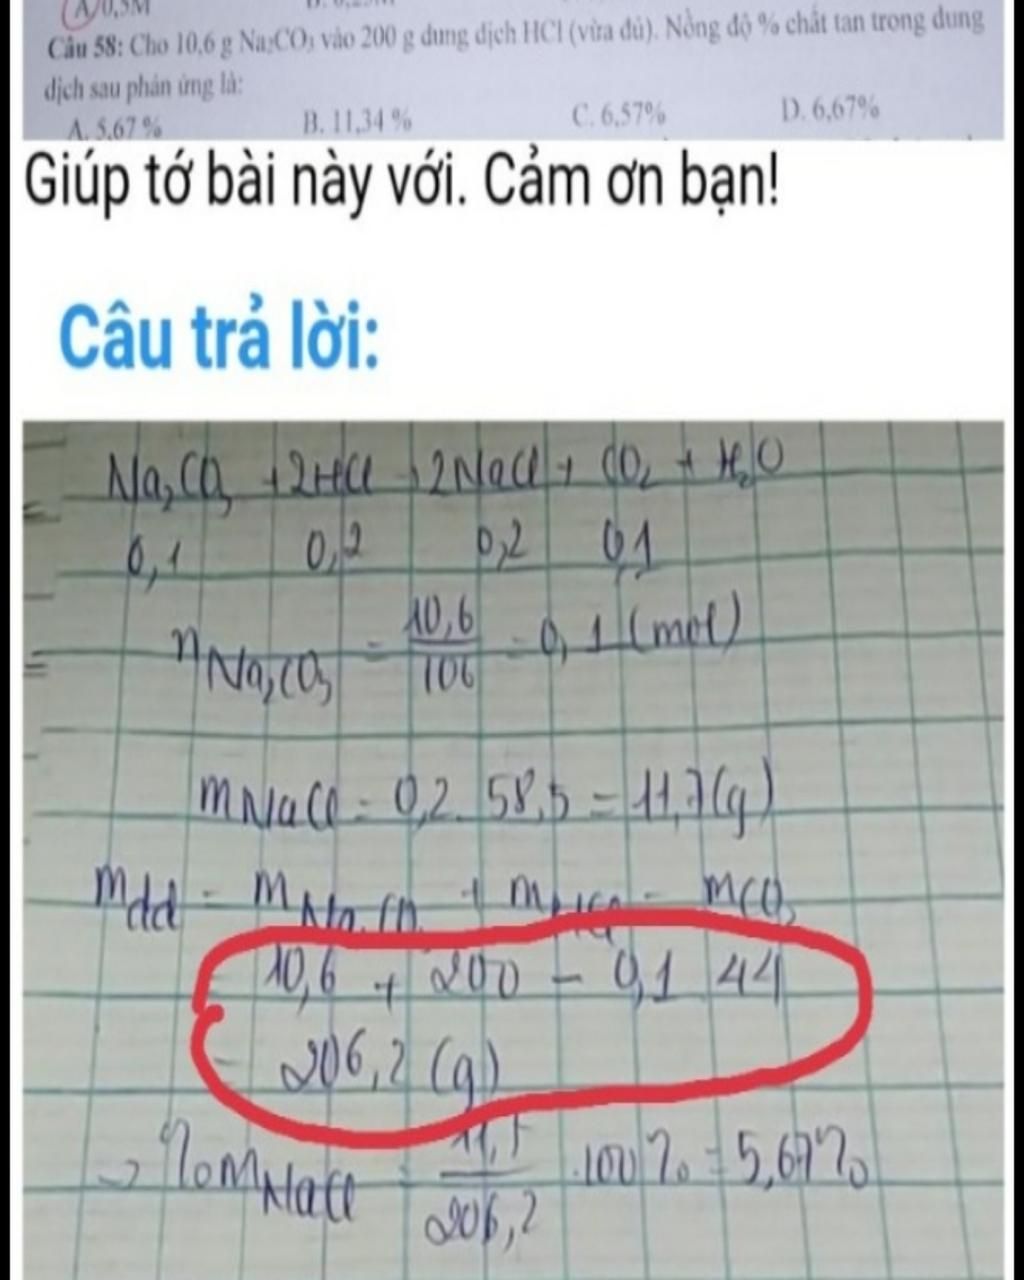 A/0,5M
Câu 58: Cho 10,6 g Na₂CO₃ vào 200 g dung dịch HCl (vừa đủ). Nồng độ % chất tan trong dung
dịch sau phản ứng là:
A. 5,67 % B. 11,34 % C. 6,57% D. 6,67%
Giúp tớ bài này với. Cảm ơn bạn!
Câu trả lời:
Na₂CO₃ + 2HCl → 2NaCl + CO₂ + H₂O
0,1 0,2 0,2 0,1
nNa₂CO₃ = 10,6/106 = 0,1 (mol)
mNaCl = 0,2. 58,5 = 11,7 (g)
mdd = mNa₂CO₃ + mHCl - mCO₂
10,6 + 200 - 0,1 44
= 206,2 (g)
→ %mNaCl = 11,7/206,2 .100% = 5,67%